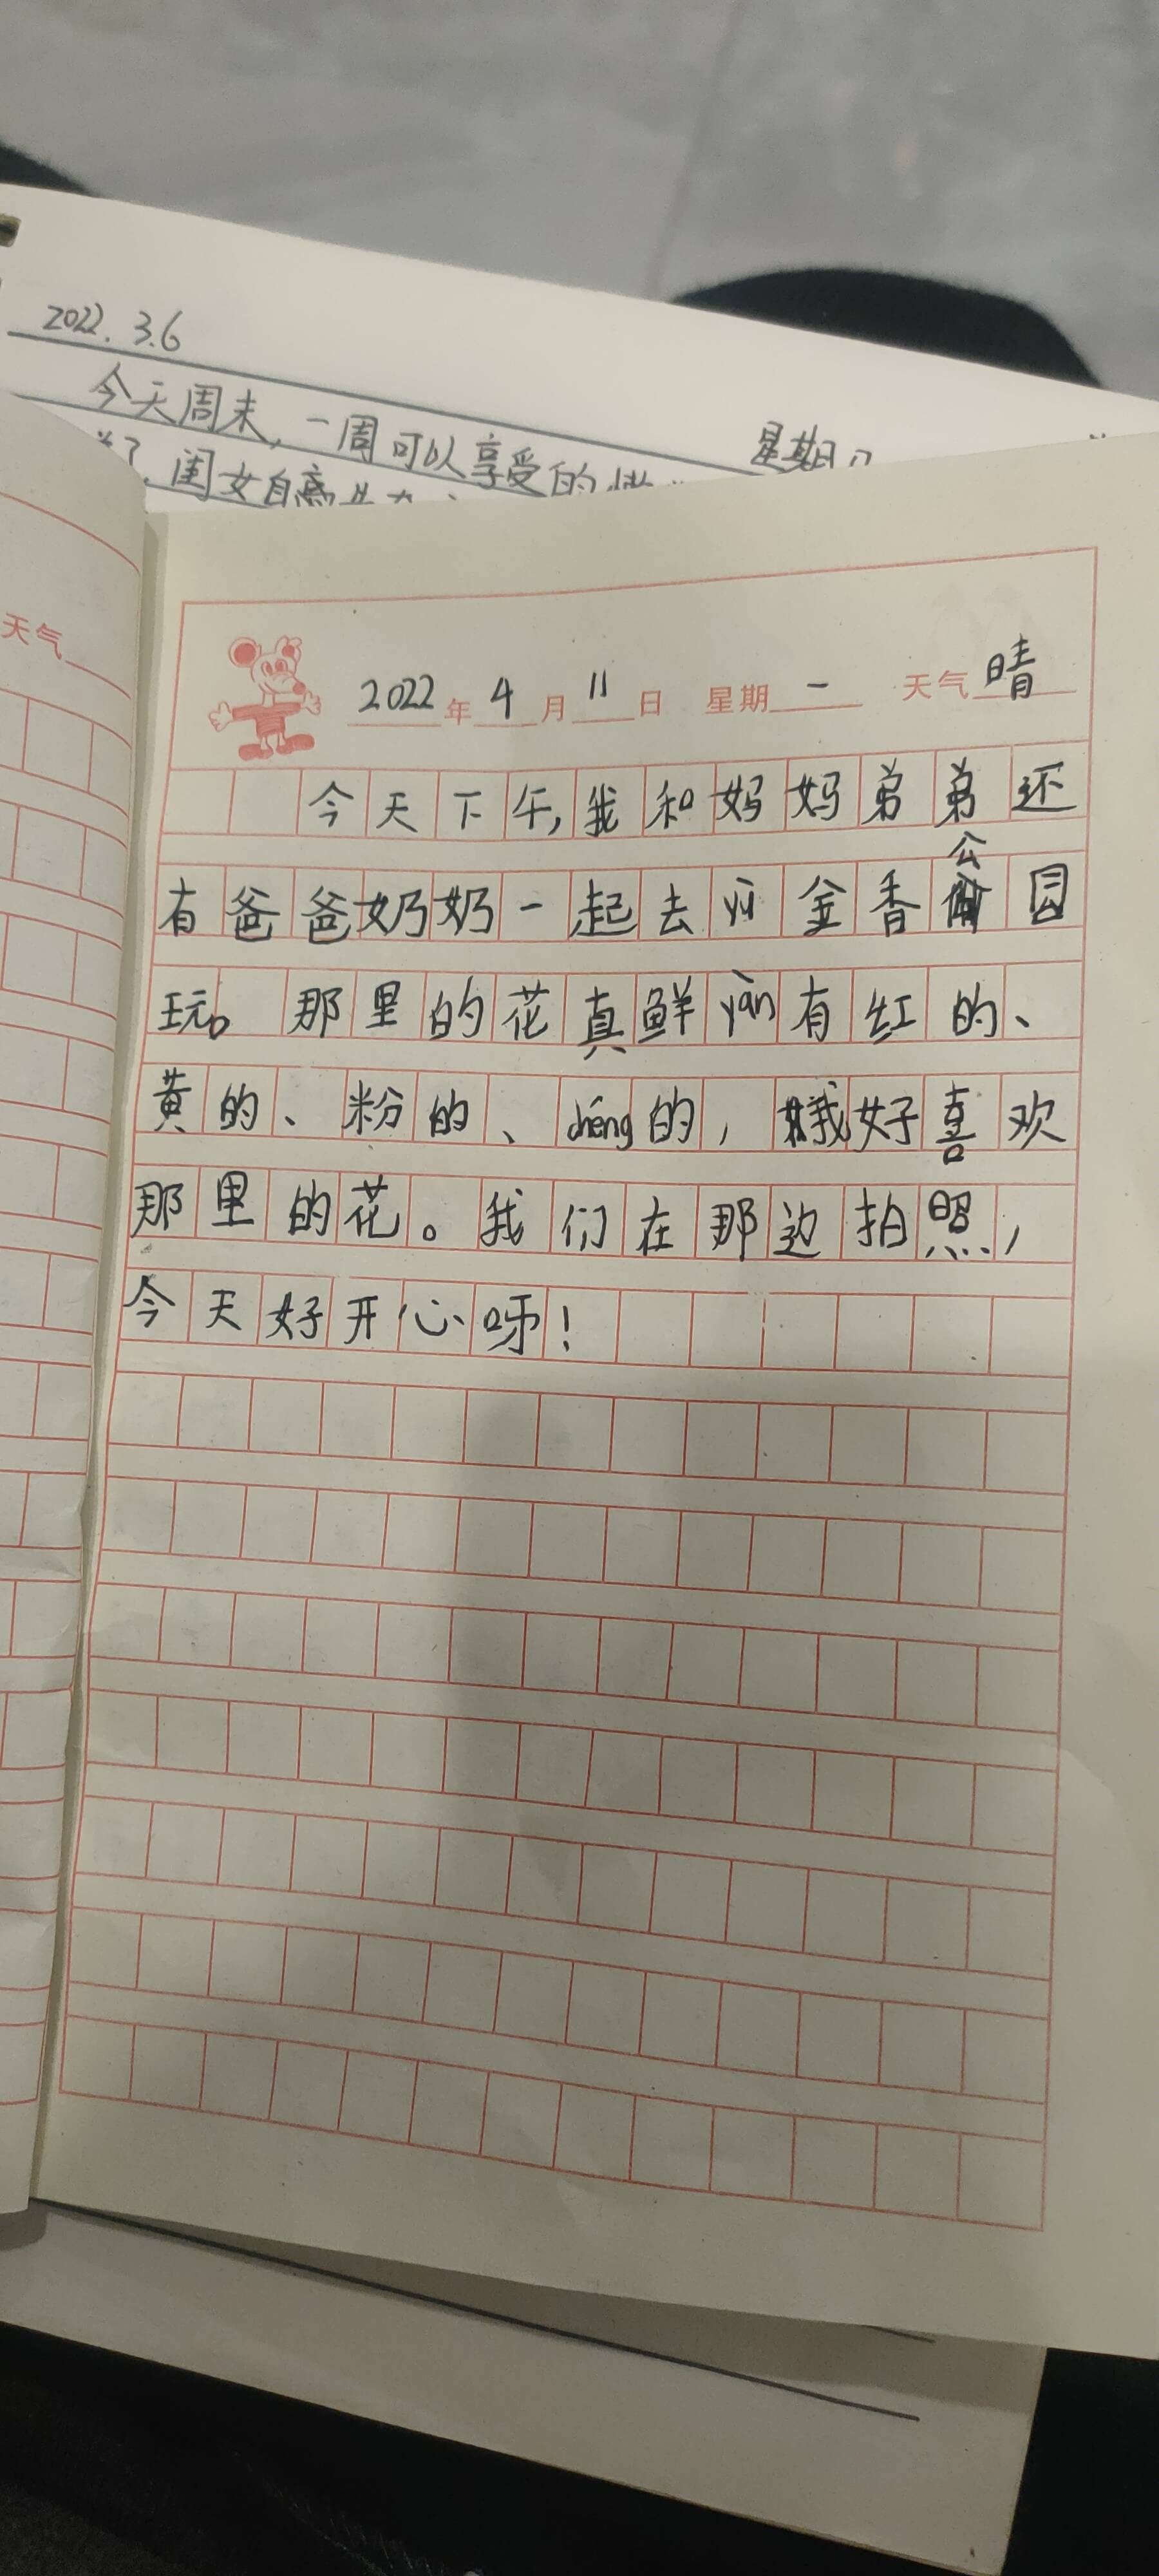 2022.3.6
星期日
今天周末,一周可以享受的
闺女自
天气
2022年4月11日 星期一 天气晴
今天下午,我和妈妈弟弟还
有爸爸奶奶一起去yù金香公园
玩。那里的花真鲜yàn有红的、
黄的、粉的、chéng的,我好喜欢
那里的花。我们在那边拍照,
今天好开心呀!